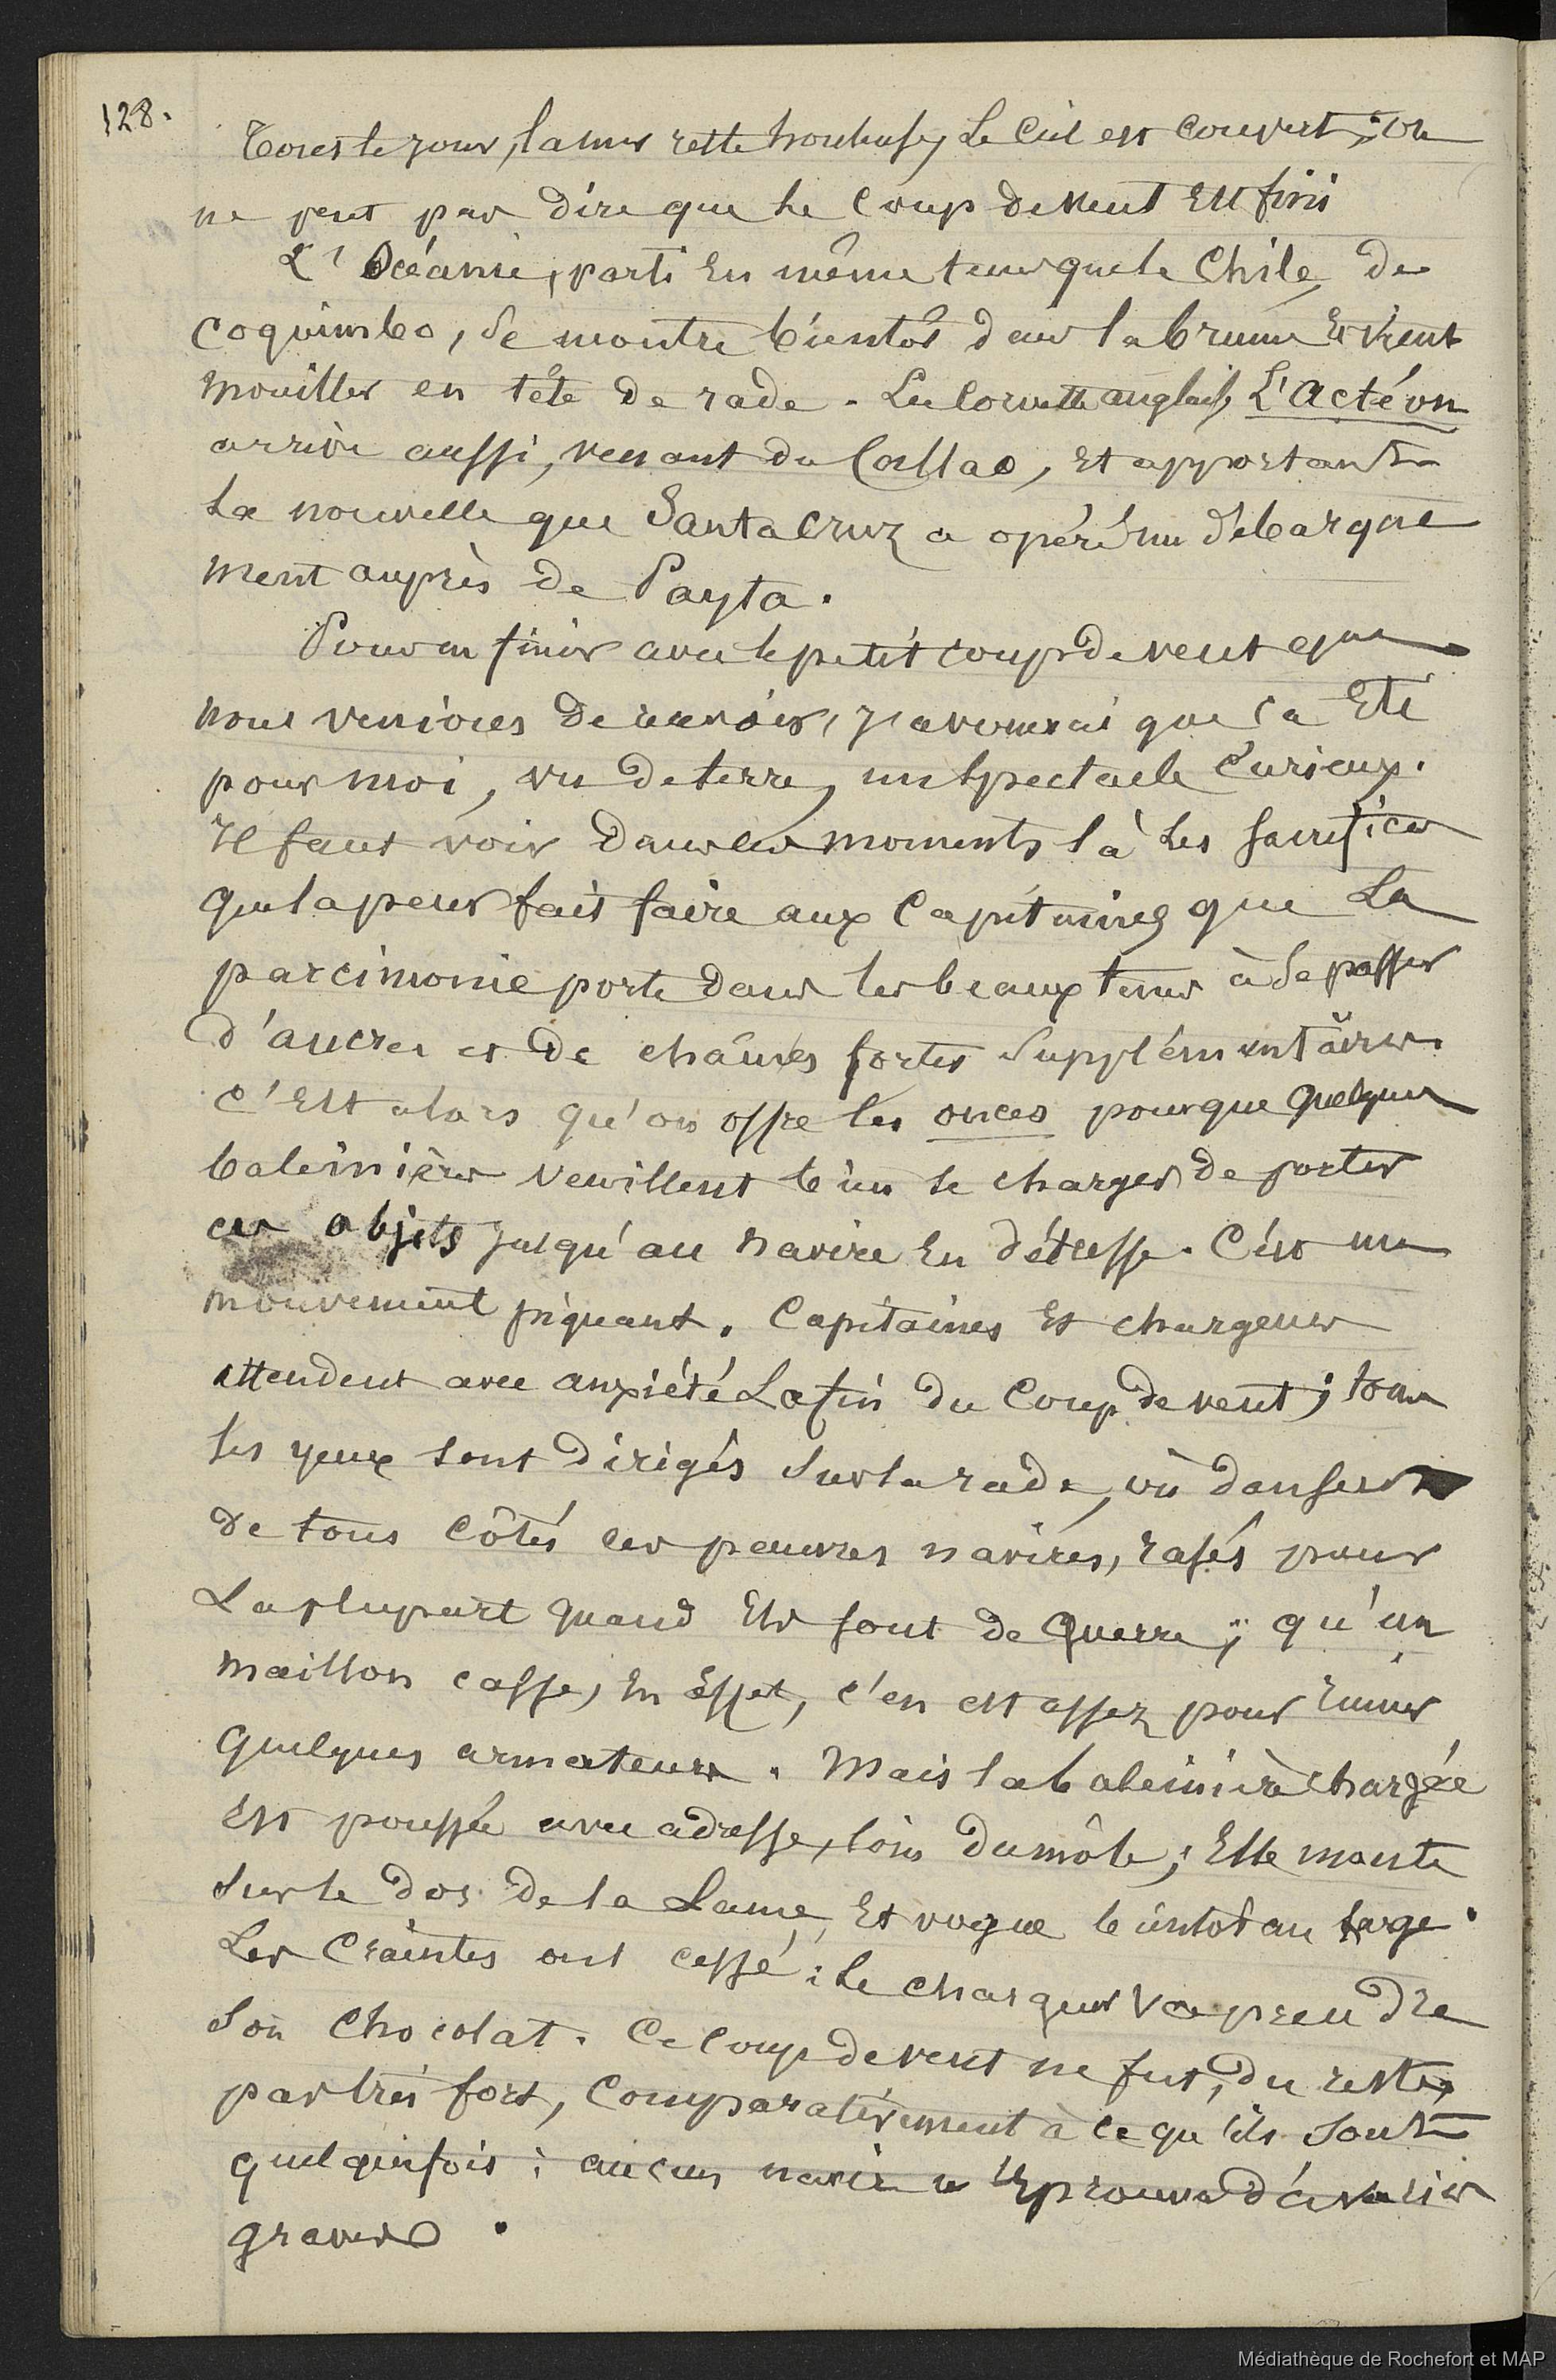 128.
Tout le jour, la mer reste houleuse, Le Ciel est couvert ; on
ne peut pas dire que le Coup de vent Est fini
L'Océanie, parti En même tems que le Chile, de
Coquimbo, Se montre bientôt dans la brume Et vient
Mouiller en tête de rade. La Corvette anglaise, L'Actéon
arrive aussi, venant du Callao, Et apportant
La nouvelle que Santa Cruz a opéré un débarque
ment auprès de Payta.
Pour en finir avec le petit coup de vent que
nous venions de recevoir, j'avouerai que ça Eté
pour moi, vu de terre, un Spectacle Curieux.
Il faut voir dans ces moments là Les sacrifices
que la peur fait faire aux Capitaines que La
parcimonie porte dans les beaux tems à Se passer
d'ancres et de chaînes fortes Supplémentaires.
C'Est alors qu'on offre les onces pour que quelques
baleinières veuillent bien se charger de porter
ces objets jusqu'au navire En détresse. C'est un
mouvement piquant. Capitaines Et chargeurs
attendent avec anxiété La fin du Coup de vent ; tous
les yeux sont dirigés Sur la rade, où dansent
de tous Côtés ces pauvres navires, rasés pour
La plupart quand Ils sont de guerre ; qu'un
maillon casse, En Effet, c'en est assez pour ruiner
quelques armateurs. Mais la baleinière chargée
Est poussée avec adresse, loin du môle ; Elle monte
Sur le dos de la Lame, Et vogue bientôt au large.
Les Craintes ont cessé : Le chargeur va prendre
Son Chocolat. Ce Coup de vent ne fut, du reste,
pas très fort, Comparativement à ce qu'ils Sont
quelquefois : aucun navire n'Eprouva d'avaries
graves.
Médiathèque de Rochefort et MAP